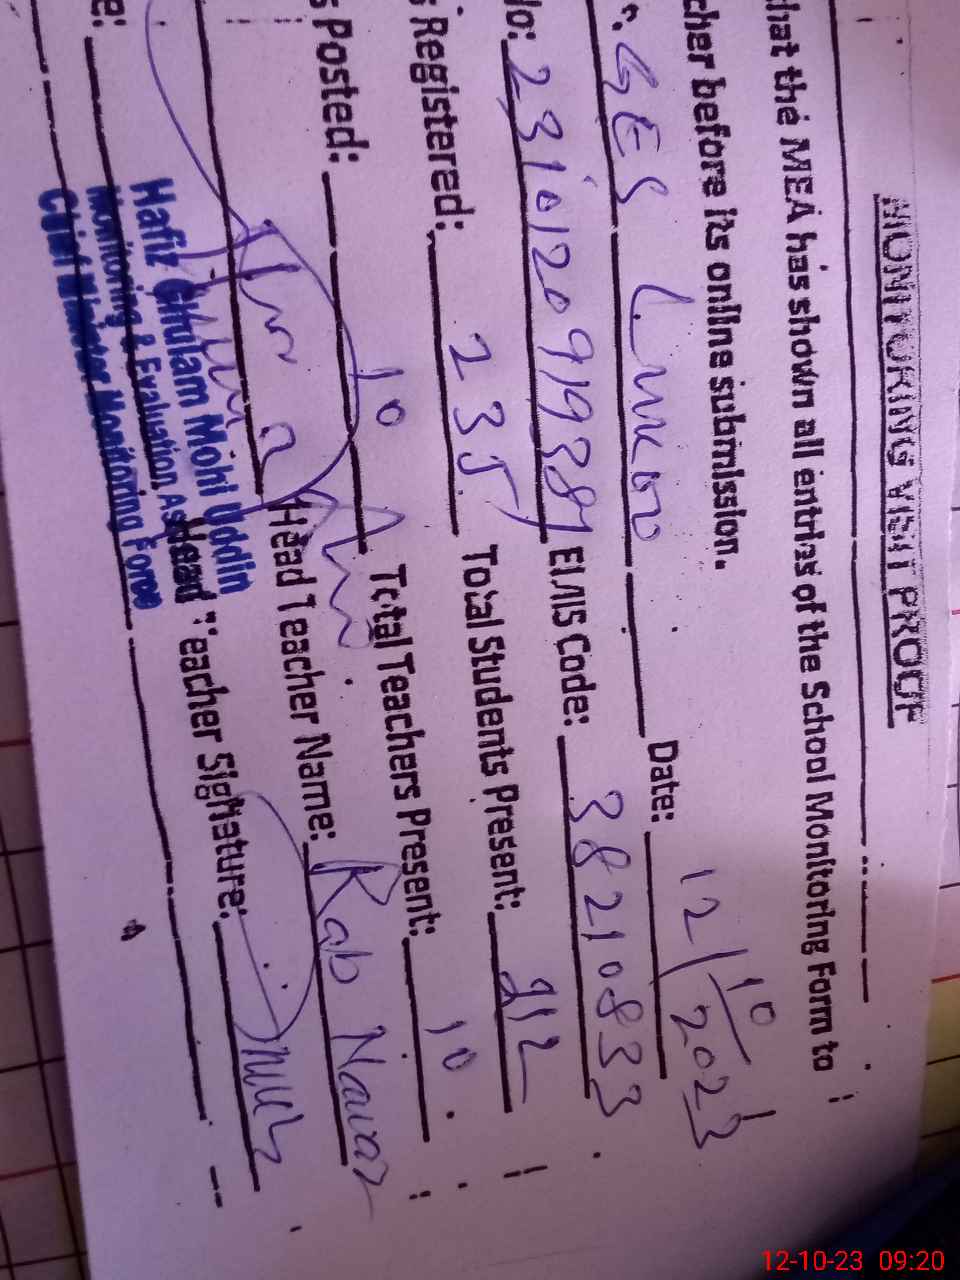 MONITORING VISIT PROOF
that the MEA has shown all entries of the School Monitoring Form to
cher before its online submission.
GES Date: 12/10/2023
No: 2310120919389 EMIS Code: 38210833
s Registered: 235 Total Students Present: 212
s Posted: 10 Total Teachers Present: 10
Head Teacher Name: Rab Nawaz
Head Teacher Signature:
e:
Hafiz Ghulam Mohi Uddin
Monitoring & Evaluation Ass
Chief Minister Monitoring Force
12-10-23 09:20